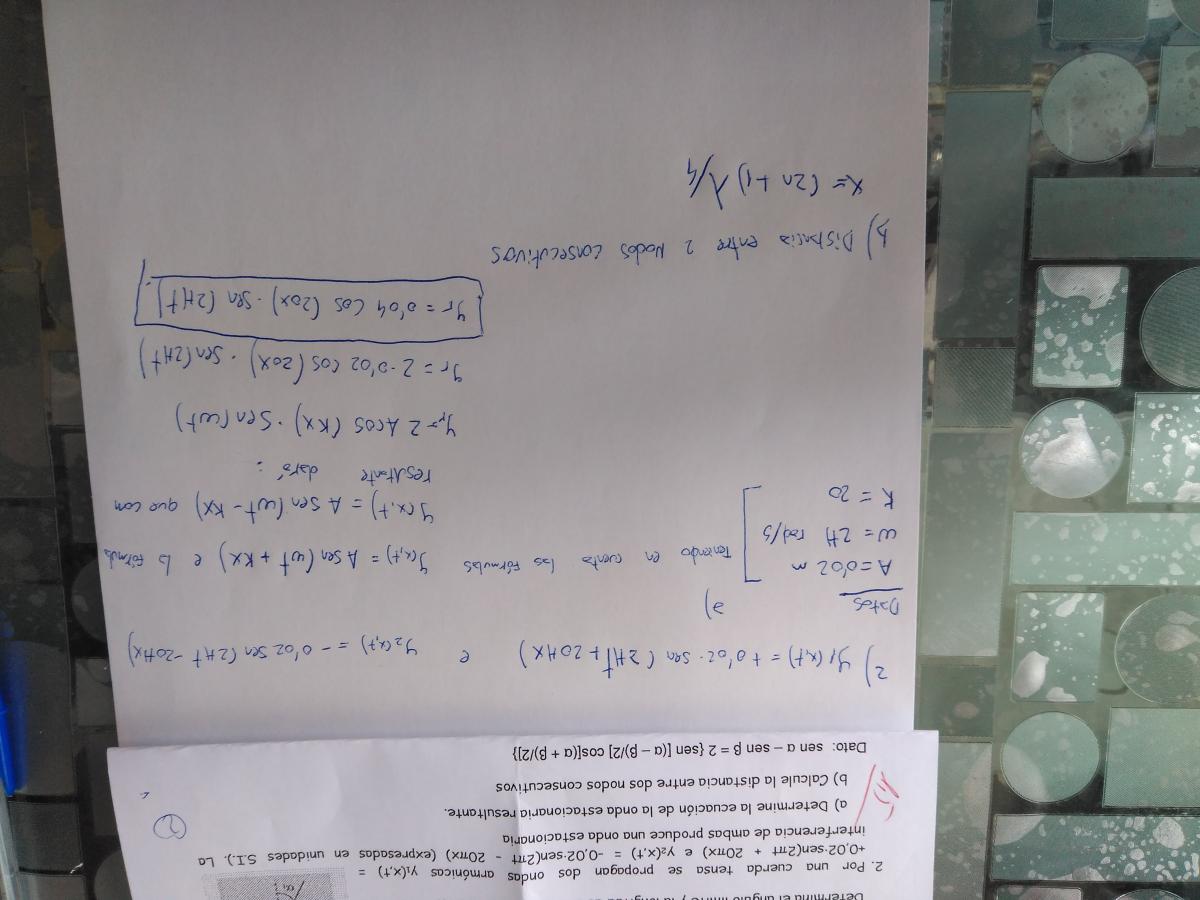 Determina el ángulo límite y la
2. Por una cuerda tensa se propagan dos ondas armónicas y₁(x,t) =
+0,02·sen(2πt + 20πx) e y₂(x,t) = -0,02·sen(2πt - 20πx) (expresadas en unidades S.I.). La
interferencia de ambas produce una onda estacionaria
a) Determine la ecuación de la onda estacionaria resultante.
b) Calcule la distancia entre dos nodos consecutivos
Dato: sen α – sen β = 2 {sen [(α – β)/2] cos[(α + β)/2]}
2) y₁(x,t) = +0'02· sen (2πt + 20πx) e y₂(x,t) = -0'02 sen (2πt - 20πx)
Datos
a)
A = 0'02 m
ω = 2π rad/s
K = 20
Teniendo en cuenta las fórmulas y(x,t) = A sen (ωt + Kx) e la fórmula
y(x,t) = A sen (ωt - Kx) que com
resultante dará :
yr = 2 A cos (Kx) · Sen (ωt)
yr = 2·0'02 cos (20x) · sen (2πt)
yr = 0'04 cos (20x) · sen (2πt)
b) Distancia entre 2 Nodos consecutivos
x = (2n + 1) λ/4